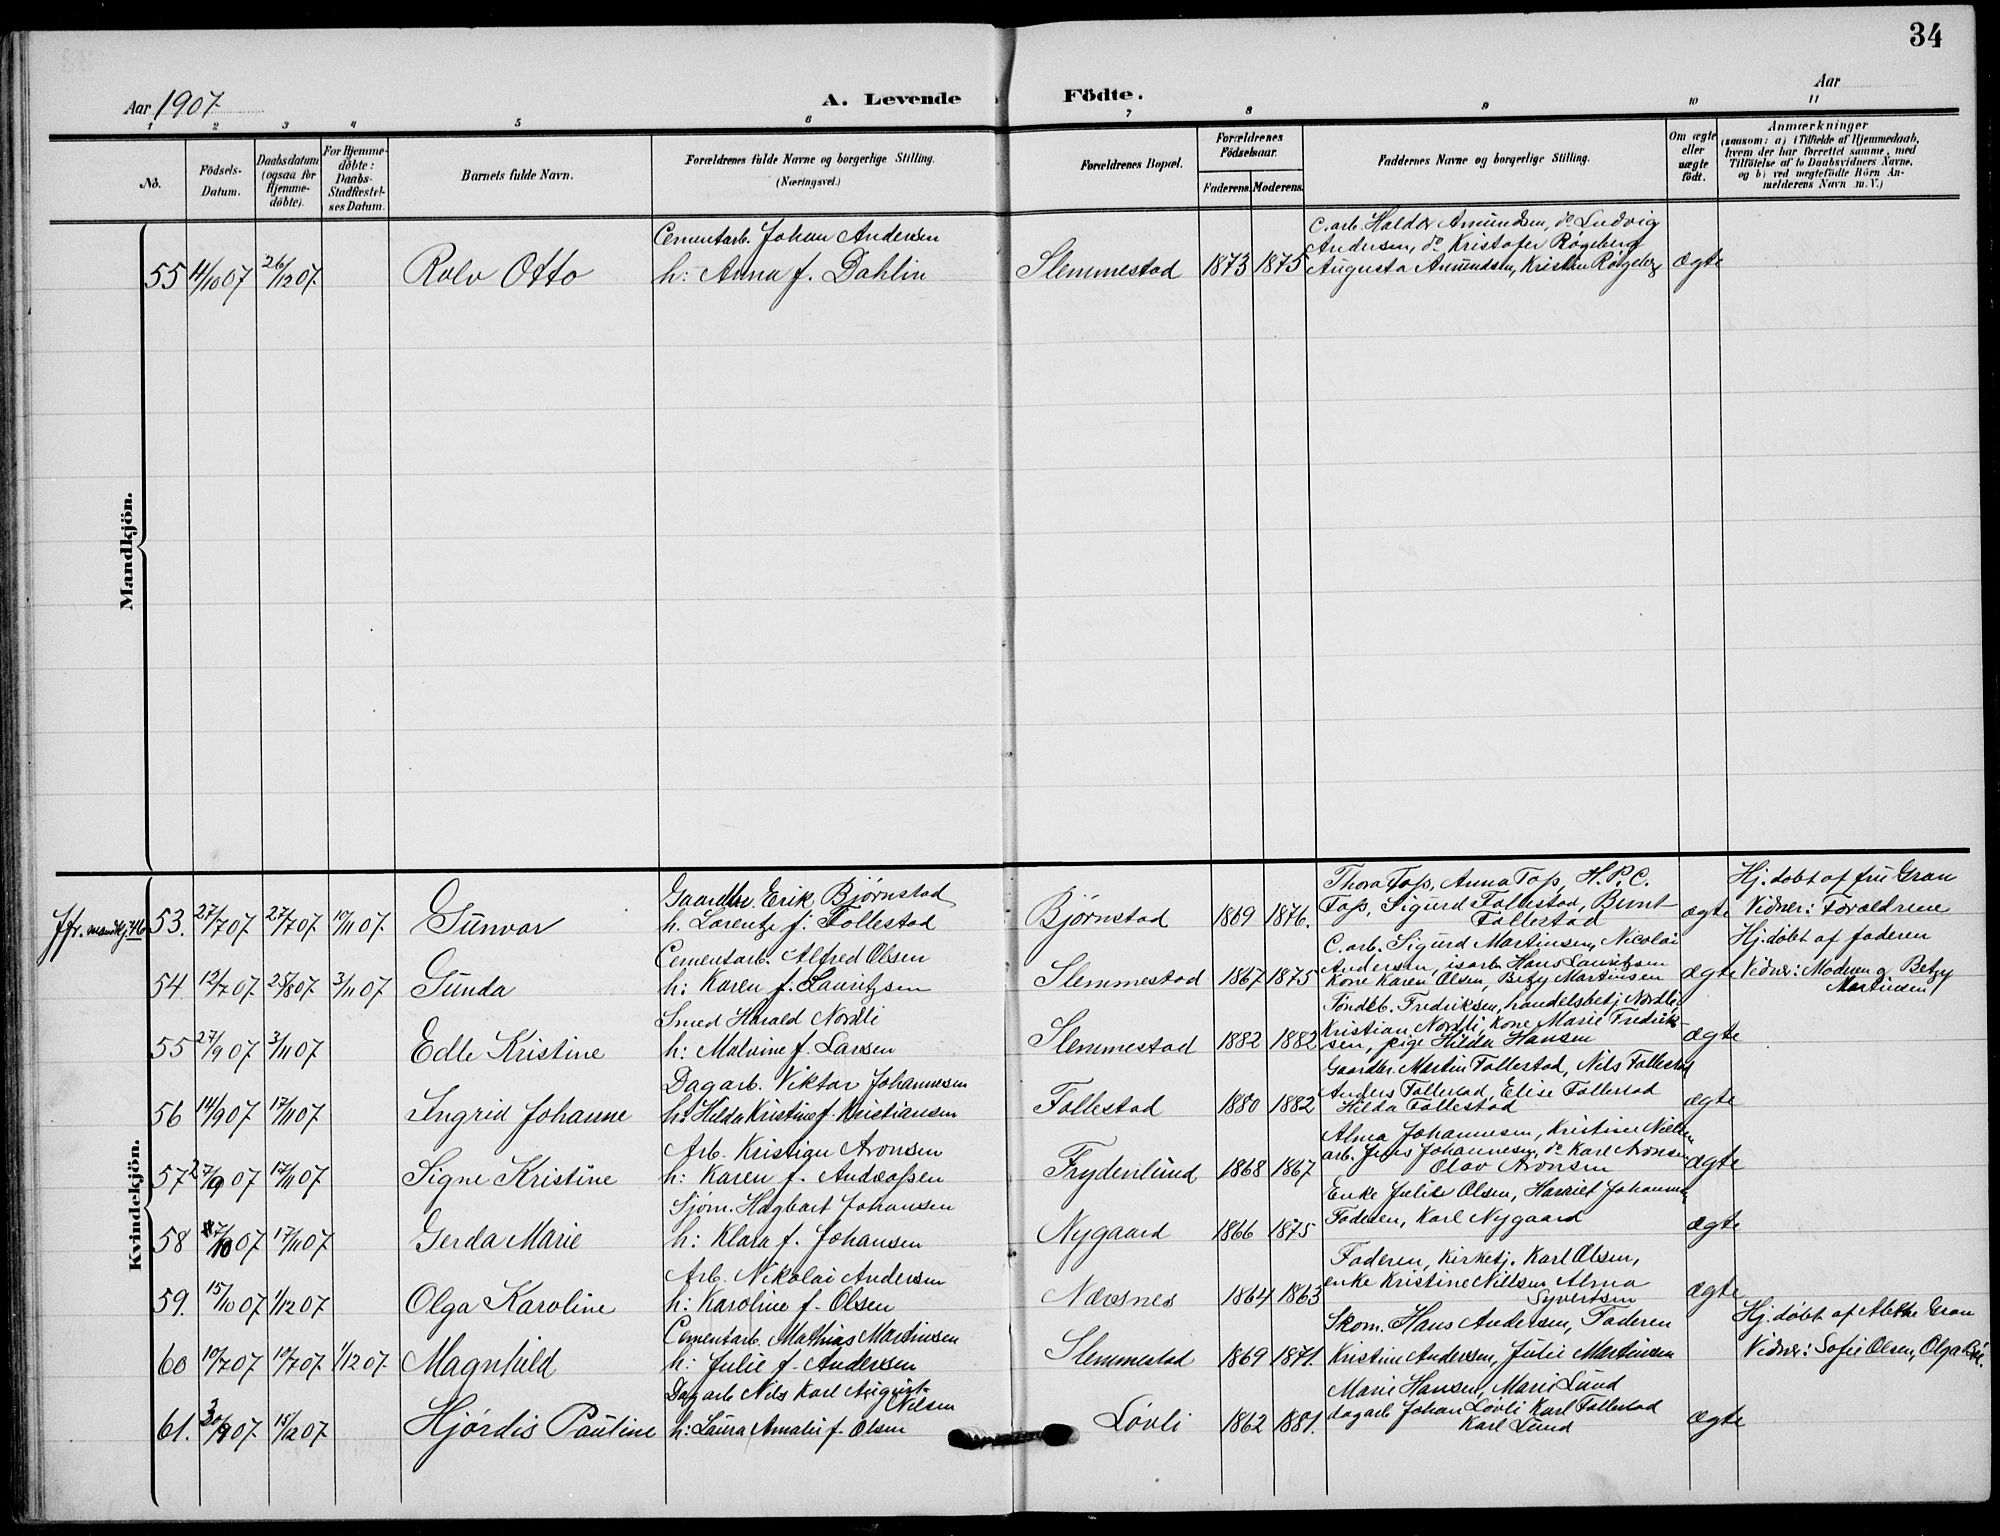 34
Aar 1907
A. Levende Födte.
Aar
1 2 3 4 5 6 7 8 9 10 11
No.
Födsels-Datum.
Daabsdatum (ogsaa for Hjemme-döbte).
For Hjemme-döbte: Daabs-Stadfæstel-ses Datum.
Barnets fulde Navn.
Forældrenes fulde Navne og borgerlige Stilling.
(Næringsvei.)
Forældrenes Bopæl.
Forældrenes Födselsaar.
Faderens. Moderens.
Faddernes Navne og borgerlige Stilling.
Om ægte eller uægte födt.
Anmærkninger
(saasom: a) i Tilfælde af Hjemmedaab,
hvem der har forrettet samme, med
Tilföielse af to Daabsvidners Navne,
og b) ved uægtefödte Börn An-
melderens Navn m. V.)
Mandkjön.
Cementarb. Johan Andersen
55 11/10 07 26/12 07. Rolv Otto h: Anna f. Dahlin Slemmestad 1873 1875
C. arb. Haldor Amundsen, do Ludvig
Andersen, do Kristofer Røgeberg
Augusta Amundsen, Kristine Røgeberg ægte
Kvindekjön.
Jfr. mandkj. 46
Gaardbr. Erik Bjørnstad
53. 27/7 07 27/7 07. 10/11 07. Gunvor h. Lorentze f. Follestad Bjørnstad 1869 1876.
Thora Top, Anna Top, H. P. C.
Top, Sigurd Follestad, Bernt
Follestad
ægte
Hj. døbt af fru Gran
Vidner: Forældrene
Cementarb. Alfred Olsen
54 12/7 07. 25/8 07. 3/11 07 Gunda h: Karen f. Lauritzsen Slemmestad 1867 1875
C. arb. Sigurd Martinsen, Nicolai
Andersen, isarb. Hans Lauritzsen
Kone Karen Olsen, Betzy Martinsen
ægte
Hj. døbt af faderen
Vidner: Moderen og Betzy
Martinsen
Smed Harald Nordli
55 27/9 07 3/11 07 Edle Kristine h: Malvine f. Larsen Slemmestad 1882 1882
Tøndeb. Fredriksen, handelsbetj. Nordli,
Kristian Nordli, Kone Marie Fredrik-
sen, pige Hilda Hansen
ægte
Dagarb. Viktor Johannesen
56 14/9 07 17/11 07 Ingrid Johanne h: Hilda Kristine f. Kristiansen Follestad 1880 1882
Gaardbr. Martin Follestad, Nils Follestad
Anders Follestad, Elise Follestad
Hilda Follestad
ægte
Arb. Kristian Aronsen
57 27/9 07 17/11 07 Signe Kristine h: Karen f. Andreassen Frydenlund 1868 1867
Alma Johannesen, Kristine Nielsen
arb. Jens Johannesen, do Karl Aronsen
Olav Aronsen
ægte
Sjøm. Hagbart Johansen
58 7/10 07 17/11 07 Gerda Marie h: Klara f. Johansen Nygaard 1866 1875
Enke Julie Olsen, Harriet Johansen,
Faderen, Karl Nygaard
ægte
Arb. Nikolai Andersen
59. 15/10 07 1/12 07 Olga Karoline h: Karoline f. Olsen Næsnes 1864 1863
Faderen, Kirketj. Karl Olsen,
enke Kristine Nielsen, Alma
Syvertsen
ægte
Cementarb. Mathias Martinsen
60 10/7 07 10/7 07. 1/12 07. Magnhild h: Julie f. Andersen Slemmestad 1869 1871.
Skom. Hans Andersen, Faderen
Kristine Andersen, Julie Martinsen
Hj. døbt af Gran
Vidner: Sofie Olsen, Olga
Dagarb Nils Karl August
Nilsen
61. 30/9 07 15/12 07 Hjørdis Pauline h: Laura Amalie f. Olsen Løvli 1862 1881.
Marie Hansen, Marie Lund
dagarb Johan Løvli Karl Follestad
Karl Lund
ægte